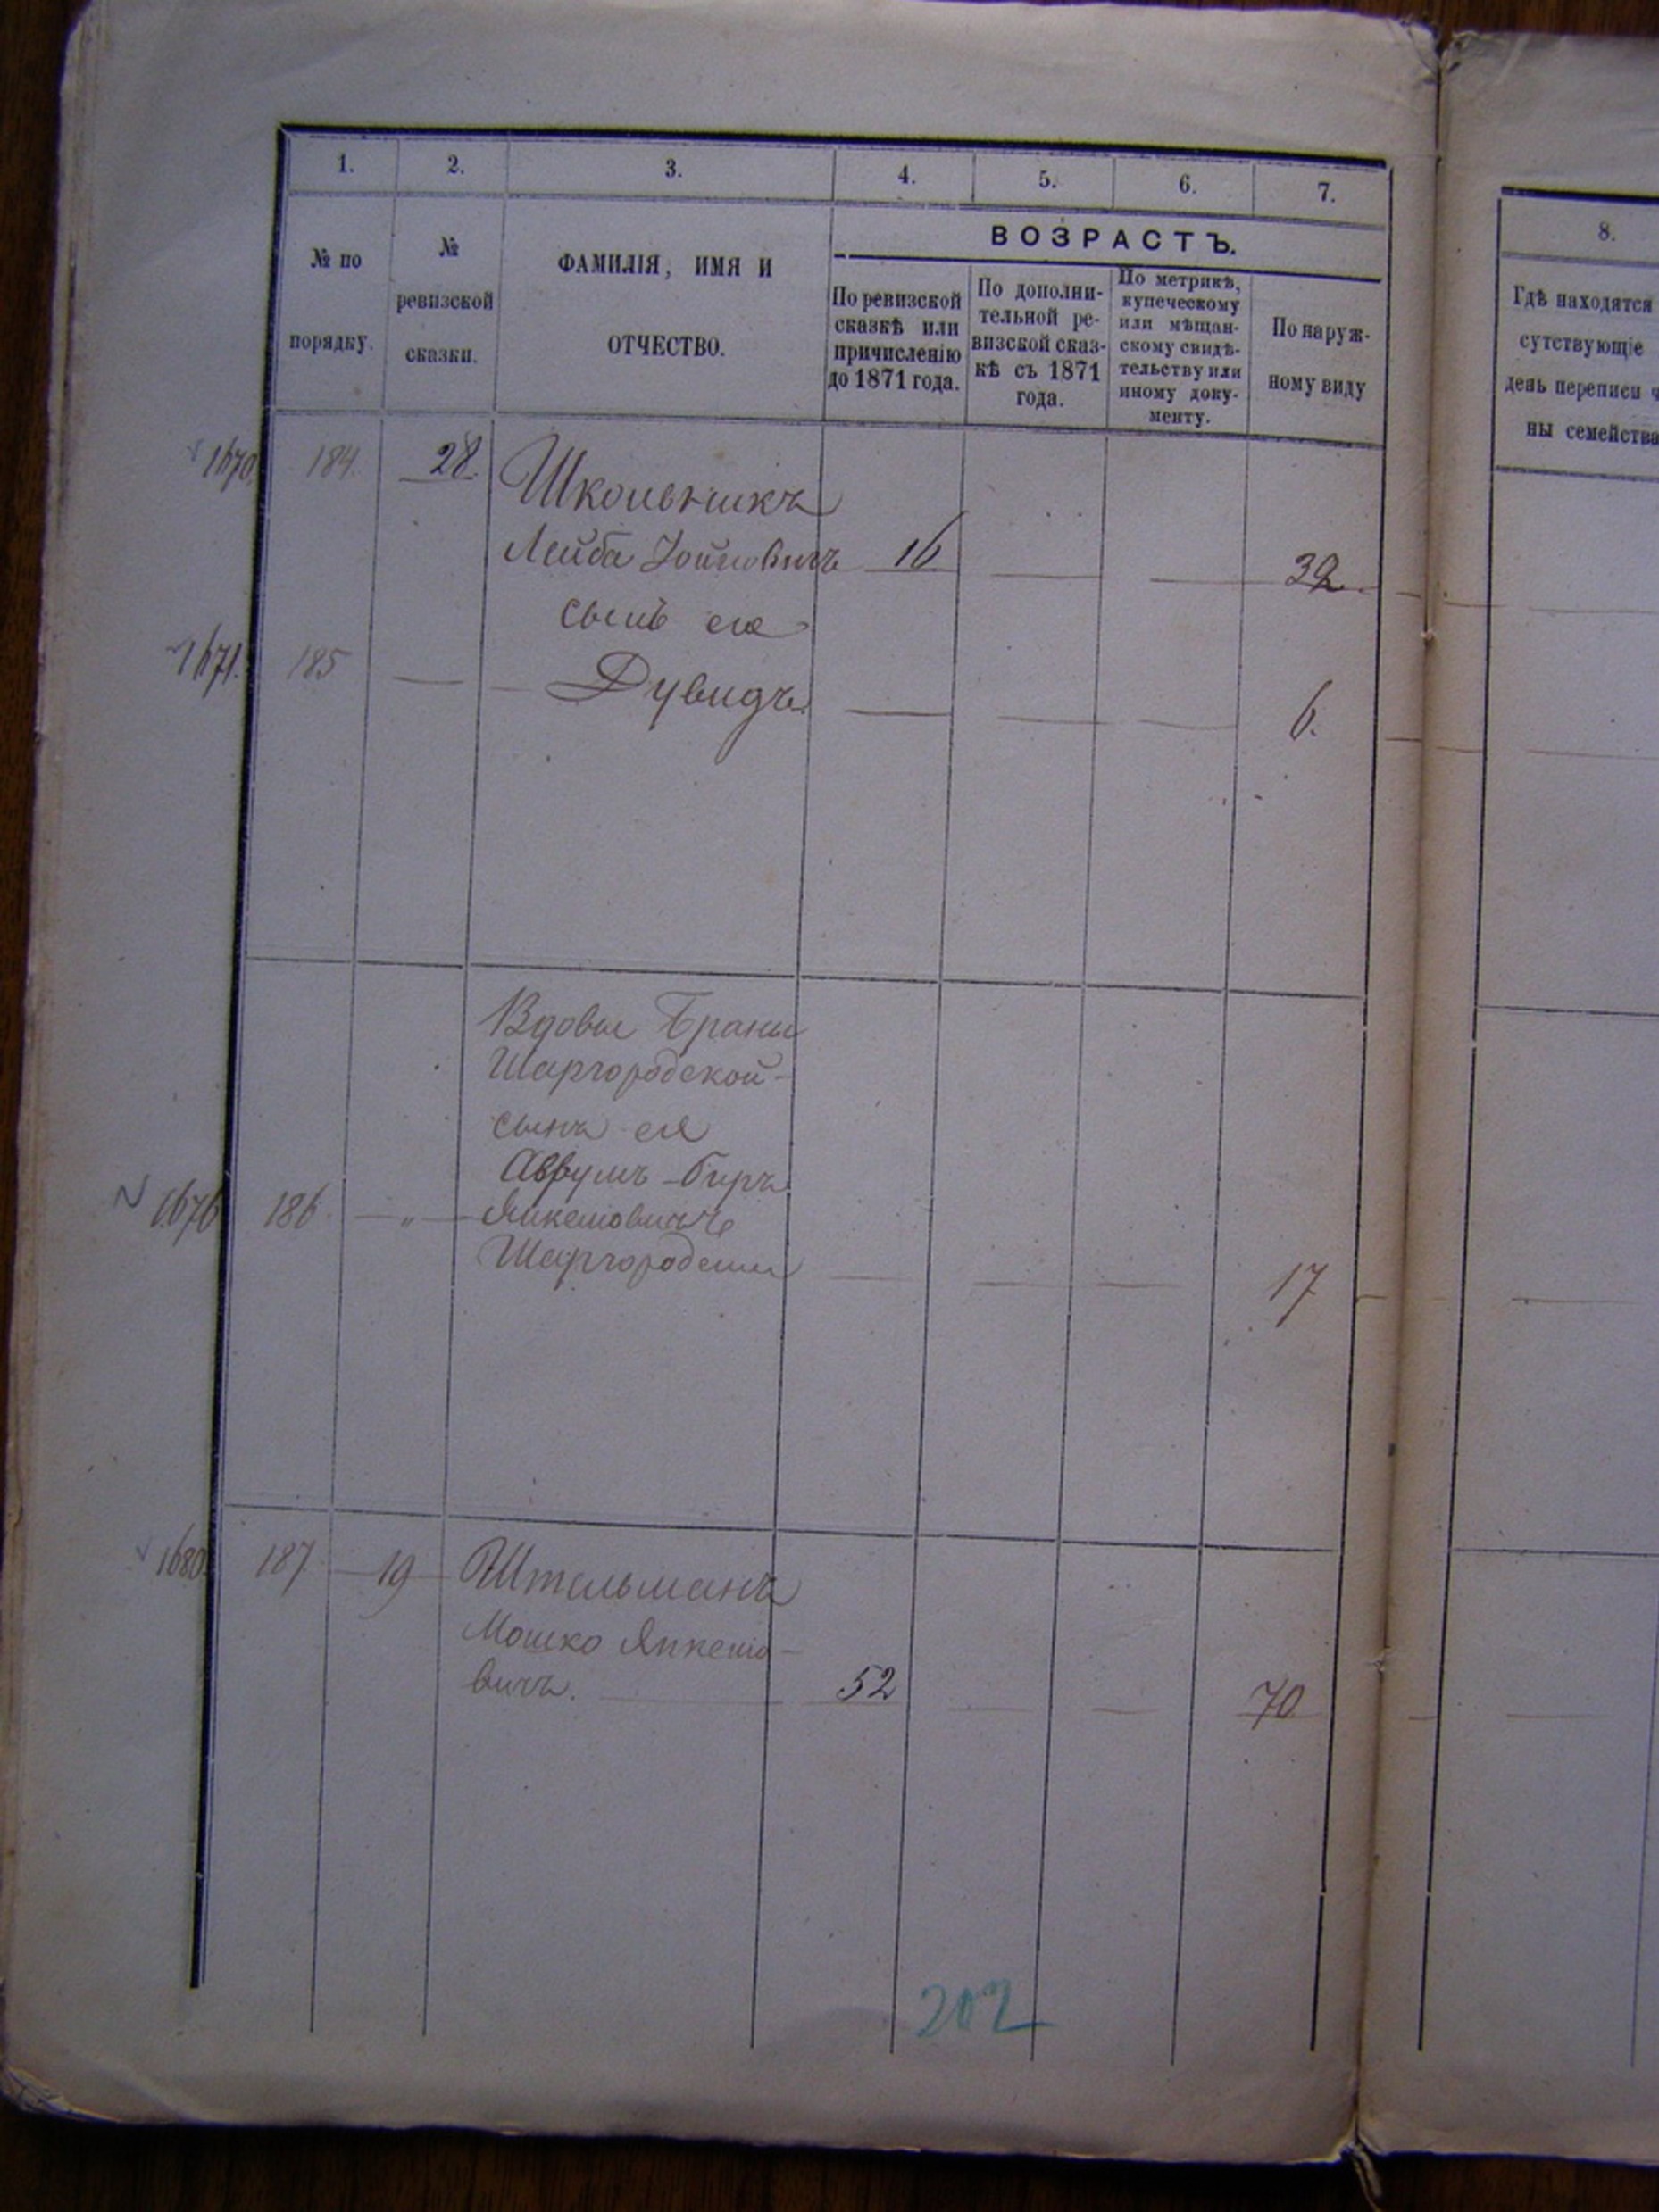 1. 2. 3. 4. 5. 6. 7.
№ по порядку.
№ ревизской сказки.
ФАМИЛІЯ, ИМЯ И ОТЧЕСТВО.
ВОЗРАСТЪ.
По ревизской
сказкѣ или
причисленію
до 1871 года.
По дополни-
тельной ре-
визской сказ-
кѣ съ 1871
года.
По метрикѣ,
купеческому
или мѣщан-
скому свидѣ-
тельству или
иному доку-
менту.
По наруж-
ному виду
8.
Гдѣ находятся
сутствующіе
день переписи
ны семейства
1670. 184. 28. Школьникъ
Лейба 16 32.
сынъ его
1671. 185 Дувидъ 6.
Вдовы Браны
Шаргородской-
сынъ ея
Аврумъ-Беръ
1676 186 — „ — Янкелевичъ
Шаргородскій 17
1680. 187 19 Штельманъ
Мошко Янкеле-
вичъ. 52 70
202